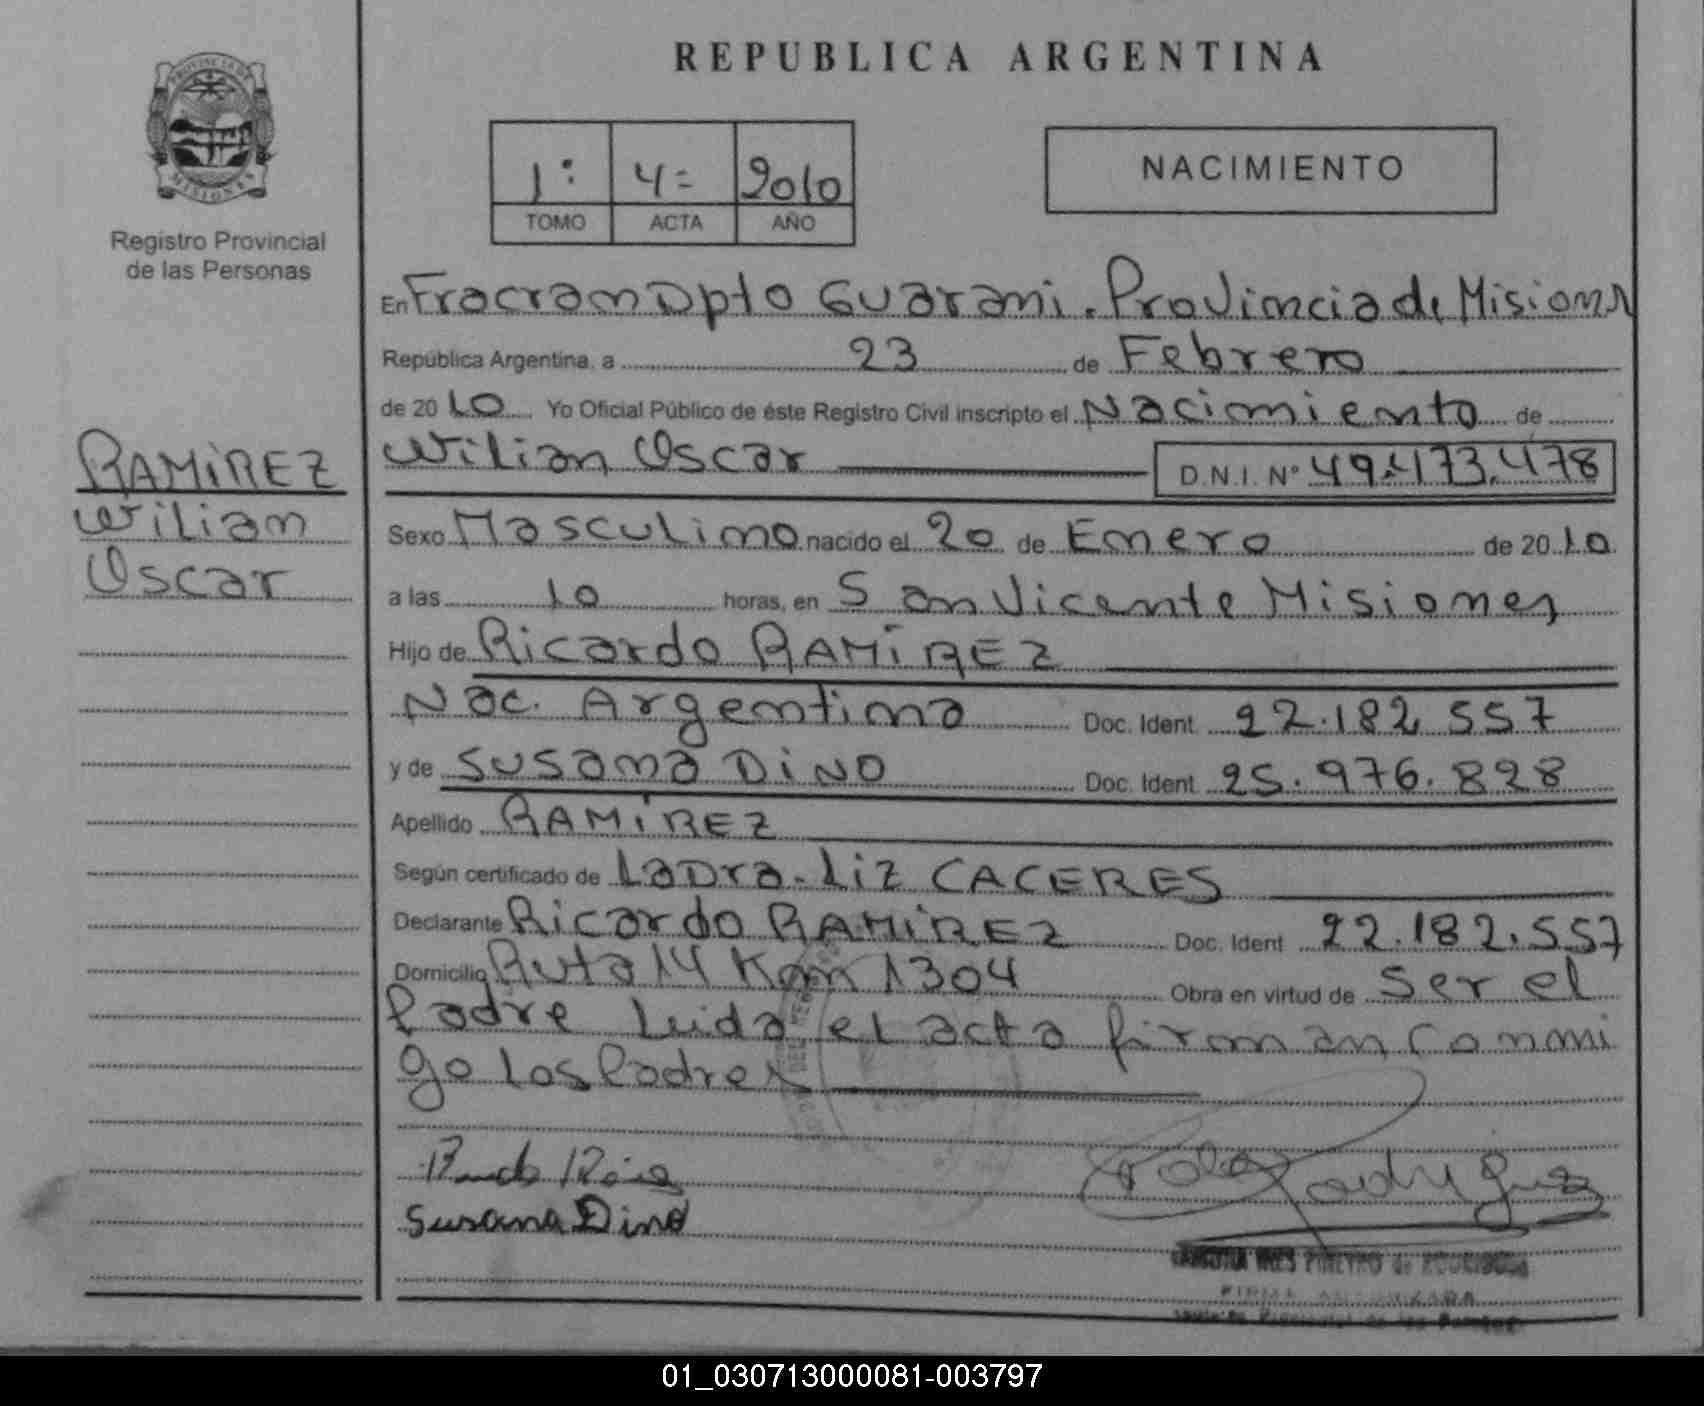 REPUBLICA ARGENTINA
PROVINCIA DE
MISIONES
Registro Provincial
de las Personas
1: 4= 2010
TOMO ACTA AÑO
NACIMIENTO
En Fracran Dpto Guarani. Provincia de Misiones
República Argentina, a 23 de Febrero
de 2010 Yo Oficial Público de éste Registro Civil inscripto el Nacimiento de
Wilian Oscar D.N.I. Nº 49.473.478
RAMIREZ
Wilian
Oscar
Sexo Masculino nacido el 20 de Enero de 2010
a las 10 horas, en San Vicente Misiones
Hijo de Ricardo RAMIREZ
Nac. Argentina Doc. Ident. 22.182.557
y de SUSANA DINO Doc. Ident. 25.976.828
Apellido RAMIREZ
Según certificado de La Dra. Liz CACERES
Declarante Ricardo RAMIREZ Doc. Ident 22.182.557
Domicilio Ruta 14 Km 1304 Obra en virtud de ser el
Padre Leida el acta firman conmi
go los Padres
Susana Dino
Rodriguez
FIRMA AUTORIZADA
01_030713000081-003797